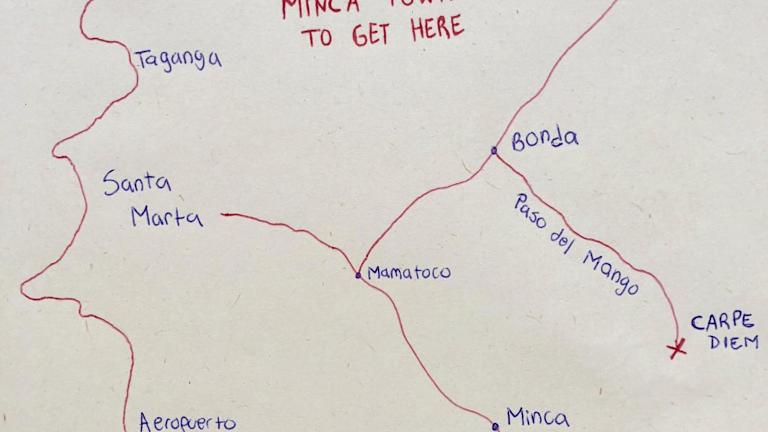 MINCA TOWN
TO GET HERE
Taganga
Bonda
Santa
Marta
Paso del Mango
Mamatoco
CARPE
DIEM
Minca
Aeropuerto